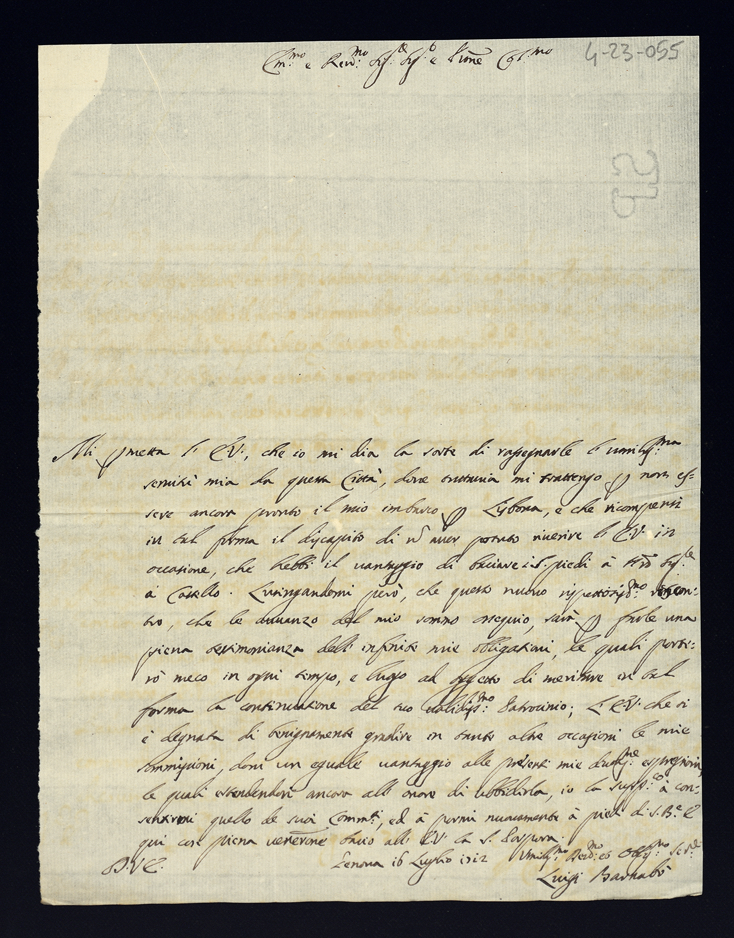 4-23-055
Em.mo e Rev.mo Sig.re Sig.r e Prone Col.mo
55
Mi pmetta l'E.V., che io mi dia la sorte di rassegnarle l'umiliss.ma
servitù mia da questa Città, dove tuttavia mi trattengo p non es-
sere ancora pronto il mio imbarco p Lisbona, e che ricompensi
in tal forma il discapito di nõ aver potuto riverire l'E.V. in
occasione, che hebbi il vantaggio di baciare i S. piedi à Nrõ Sig.re
à Castello. Lusingandomi però, che questo nuovo rispettosiss.mo riscon-
tro, che le avvanzo del mio sommo ossequio, sarà p farle una
piena testimonianza dell'infinite mie obligationi, le quali porte-
rò meco in ogni tempo, e luogo ad effetto di meritare in tal
forma la continuatione del suo validiss.mo Patrocinio; L'E.V. che si
è degnata di benignamente gradire in tante altre occasioni le mie
commissioni, doni un eguale vantaggio alle presenti mie espressioni,
le quali estendendosi ancora all'onore di ubbidirla, io la supp.co à con-
sentirmi quello de suoi Comm.ti, ed à pormi nuovamente à piedi di S. B.ne E
qui con piena venerõne bacio all'E.V. la S. Porpora.
D. V. E. Genova 16 Luglio 1712 Umiliss.mo Devot.mo ed Obblig.mo Ser.re
Luigi Barnabò